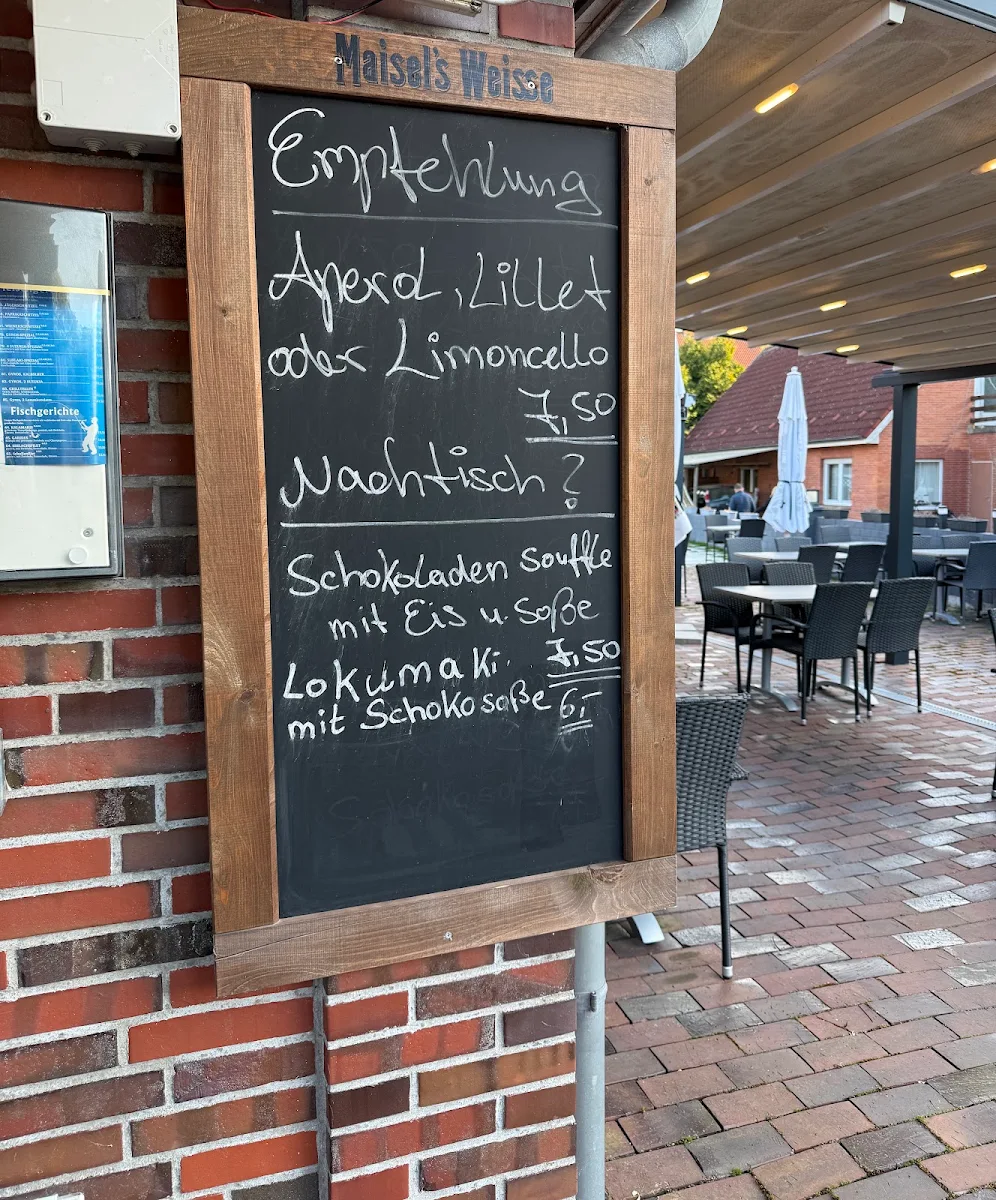 Maisel's Weisse
Empfehlung
Aperol, Lillet
oder Limoncello
7,50
Nachtisch?
Schokoladen souffle
mit Eis u. Soße
7,50
Lokumaki
mit Schokosoße 6,-
Fischgerichte